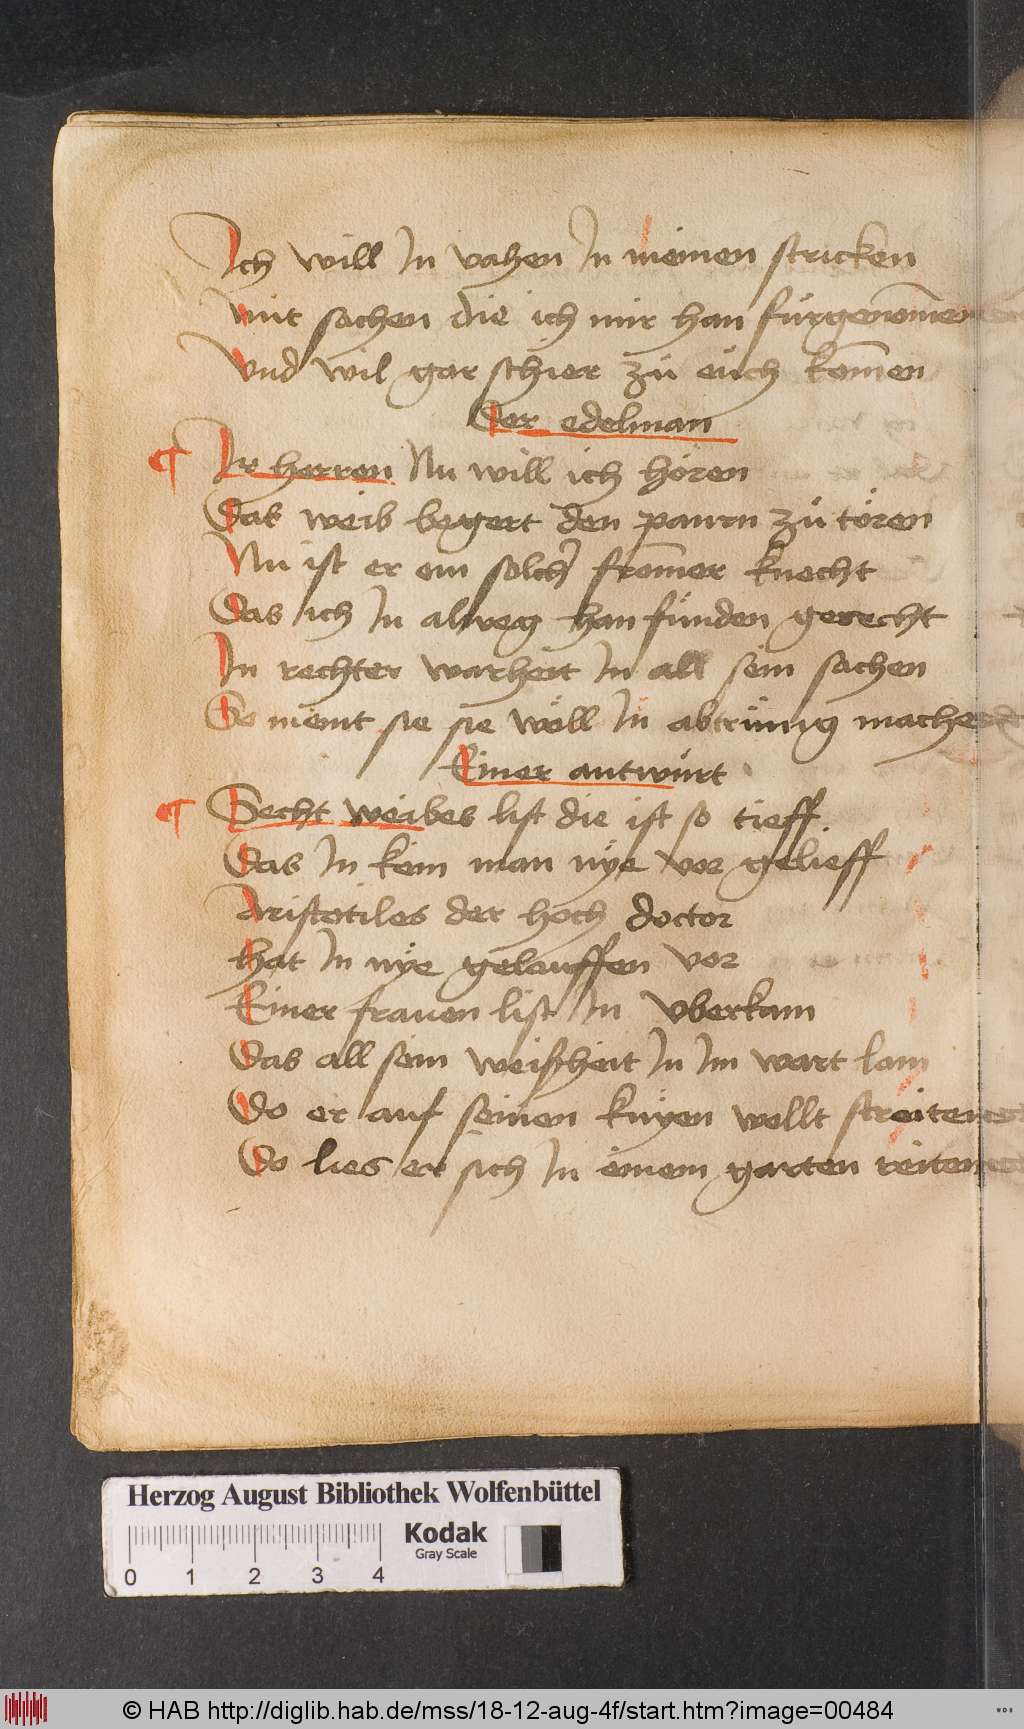 Ich will In vahen In meinen stricken
mit sachen die ich mir han fürgenom̄en
Vnd wil gar schier zü eüch kom̄en
Der edelman
¶ Ir herren Nu will ich hören
Das weib begert den paurn zü tören
Nu ist er ein solch from̄er knecht
Das ich In alweg han fünden gerecht
In rechter warheit In all sein sachen
So meint sie sie wöll In abtrünig machen
Einer antwürt
¶ Secht weibes list die ist so tieff
Das In kein man nÿe vor gelieff
Aristotiles der hoch doctor
hat In nÿe gelauffen vor
Einer frauen list In vberkam
Das all sein weißheit In Im wart lam
Do er auf seinen knÿen wollt streiten
Do lies er sich In einem garten reiten
Herzog August Bibliothek Wolfenbüttel
Kodak
Gray Scale
0 1 2 3 4
© HAB http://diglib.hab.de/mss/18-12-aug-4f/start.htm?image=00484